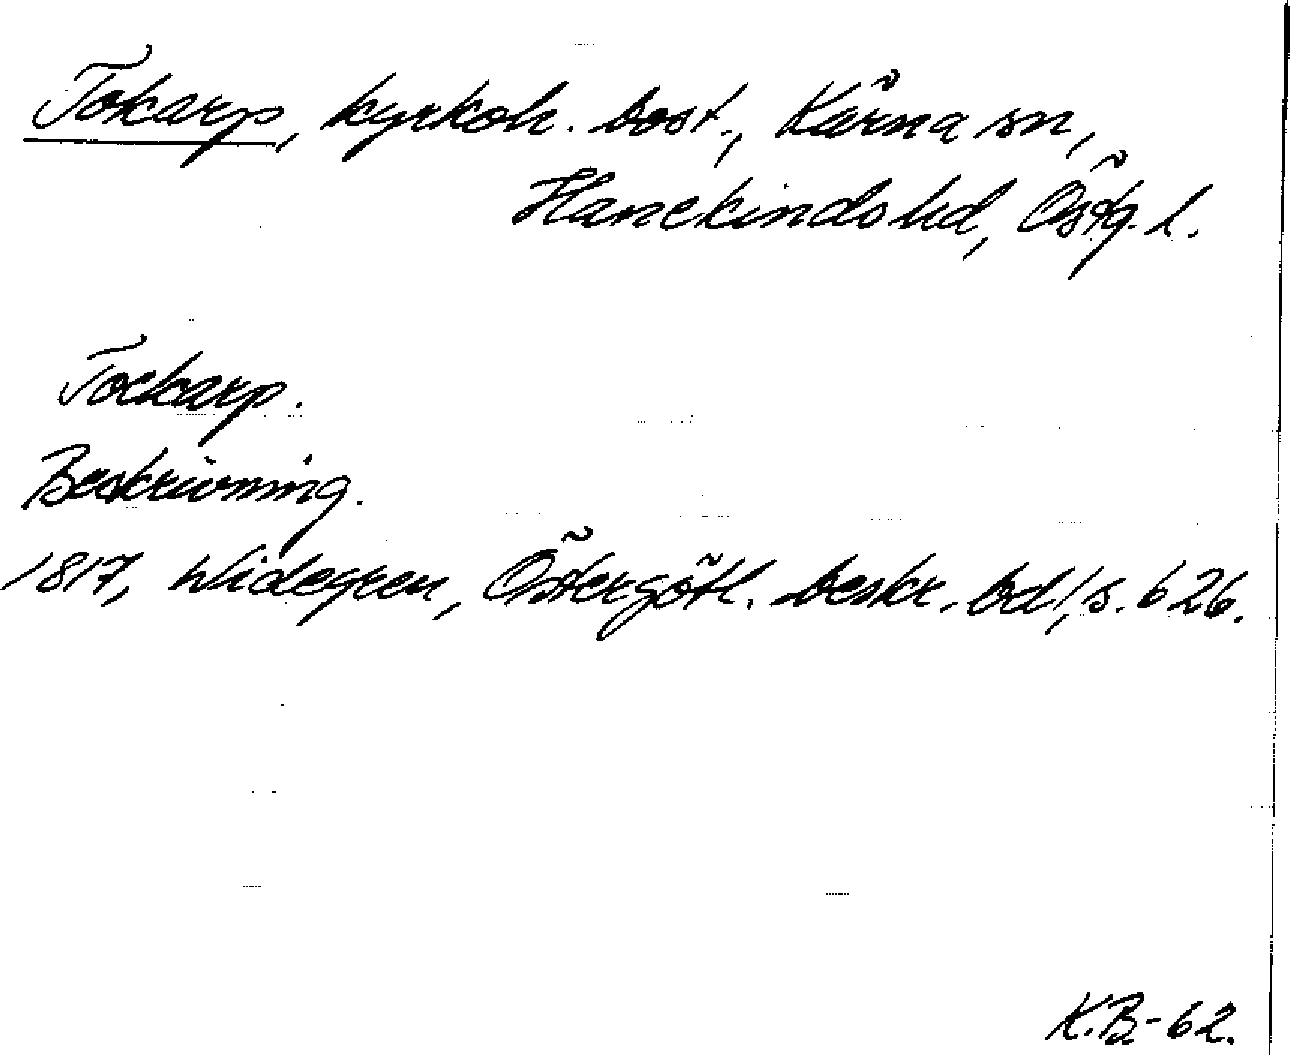 Tokarp, kyrkoh. bost., Kärna sn,
Hanekinds hd, Östg. l.
Tockarp.
Beskrivning.
1817, Widegren, Östergötl. beskr. bd 1, s. 626.
K.B-62.